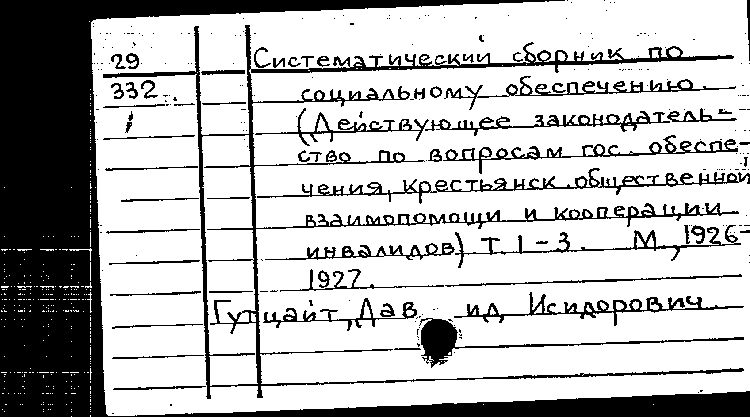 29 Систематический сборник по
332 социальному обеспечению.
1 (Действующее законодатель-
ство по вопросам гос. обеспе-
чения, крестьянск. общественной
взаимопомощи и кооперации
инвалидов) Т. 1-3. М., 1926-
1927.
Гутцайт, Давид Исидорович.